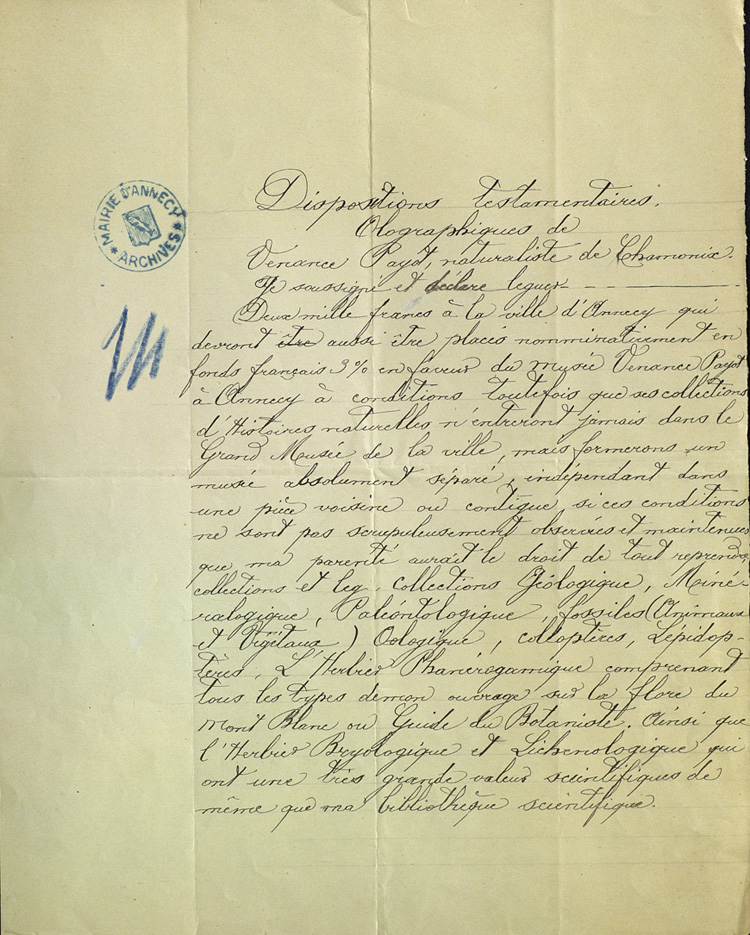 MAIRIE D'ANNECY
★ ARCHIVES ★
Dispositions testamentaires.
Olographiques de
Venance Payot, naturaliste de Chamonix.
Je soussigné et déclare leguer
Deux mille francs à la ville d'Annecy qui
devront être aussi être placés nominativement en
fonds français 3% en faveur du musée Venance Payot
à Annecy à conditions toutefois que ses collections
d'Histoires naturelles n'entreront jamais dans le
Grand Musée de la ville, mais formerons un
musée absolument séparé, indépendant dans
une pièce voisine ou contigue si ces conditions
ne sont pas scrupuleusement observées et maintenues
que ma parenté aurait le droit de tout reprendre
collections et leg. collections Géologique, Miné-
ralogique, Paléontologique, fossiles (Animaux
et Végétaux) Oologique, colloptères, Lépidop-
tères, L'Herbier Phanérogamique comprenant
tous les types de mon ouvrage sur la flore du
Mont Blanc ou Guide du Botaniste. Ainsi que
l'Herbier Bryologique et Lichenologique qui
ont une très grande valeur scientifiques de
même que ma bibliothèque scientifique.